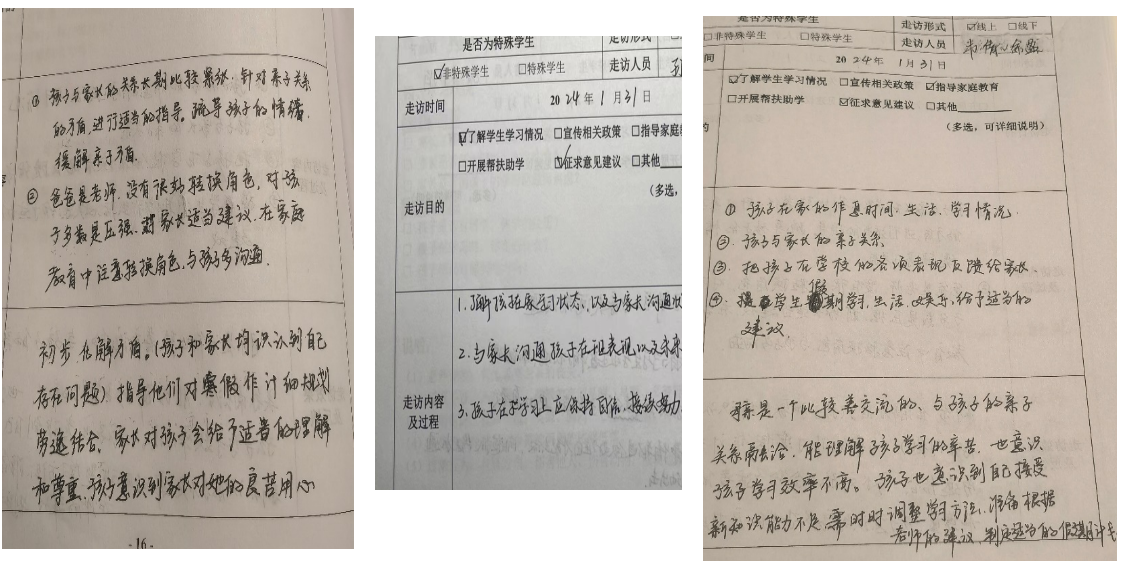 ① 孩子与家长的关系长期比较紧张. 针对亲子关系
的矛盾, 进行适当的指导。疏导孩子的情绪,
缓解亲子矛盾.
② 爸爸是老师. 没有很好转换角色. 对孩
子多数是压强. 家长适当建议. 在家庭
教育中注意转换角色. 与孩子多沟通.
初步化解矛盾。(孩子和家长均识认到自己
存在问题) 指导他们对寒假作计细规划
劳逸结合. 家长对孩子会给予适当的理解
和尊重. 孩子意识到家长对她的良苦用心
·16·
是否为特殊学生 走访形式
☑非特殊学生 □特殊学生 走访人员
走访时间 2024年1月31日
走访目的
☑了解学生学习情况 □宣传相关政策 □指导家庭
□开展帮扶助学 ☑征求意见建议 □其他
(多选,
走访内容
及过程
1.了解孩在家学习状态、以及与家长沟通
2.与家长沟通孩子在班表现以及未来
3.孩子在学习上应保持自信, 接续努力
是否为特殊学生 走访形式 ☑线上 □线下
□非特殊学生 □特殊学生 走访人员
间 2024年1月31日
☑了解学生学习情况 □宣传相关政策 ☑指导家庭教育
□开展帮扶助学 ☑征求意见建议 □其他
的 (多选, 可详细说明)
① 孩子在家的作息时间. 生活. 学习情况.
② 孩子与家长的亲子关系.
③ 把孩子在学校的各项表现反馈给家长.
④ 学生假期学习. 生活. 娱乐. 给予适当的
建议
是一个比较善交流的、与孩子的亲子
关系融洽. 能理解孩子学习的辛苦. 也意识
孩子学习效率不高。孩子也意识到自己接受
新知识能力不足 需时时调整学习方法. 准备根据
老师的建议, 制定适当的假期计